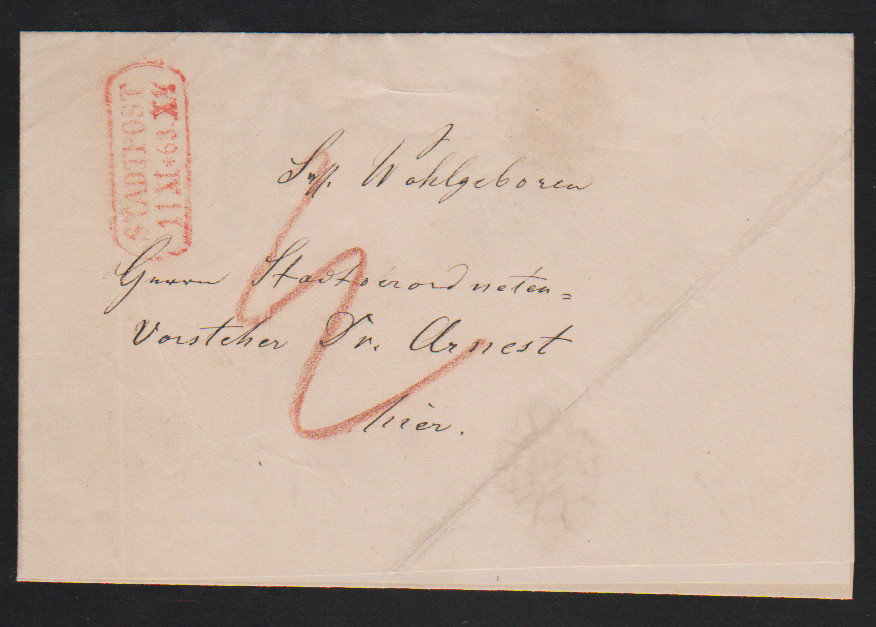 STADTPOST
11 M * 63. XI
Sr. Wohlgeboren
Herrn Stadtverordneten=
Vorsteher Dr. Arnest
hier.